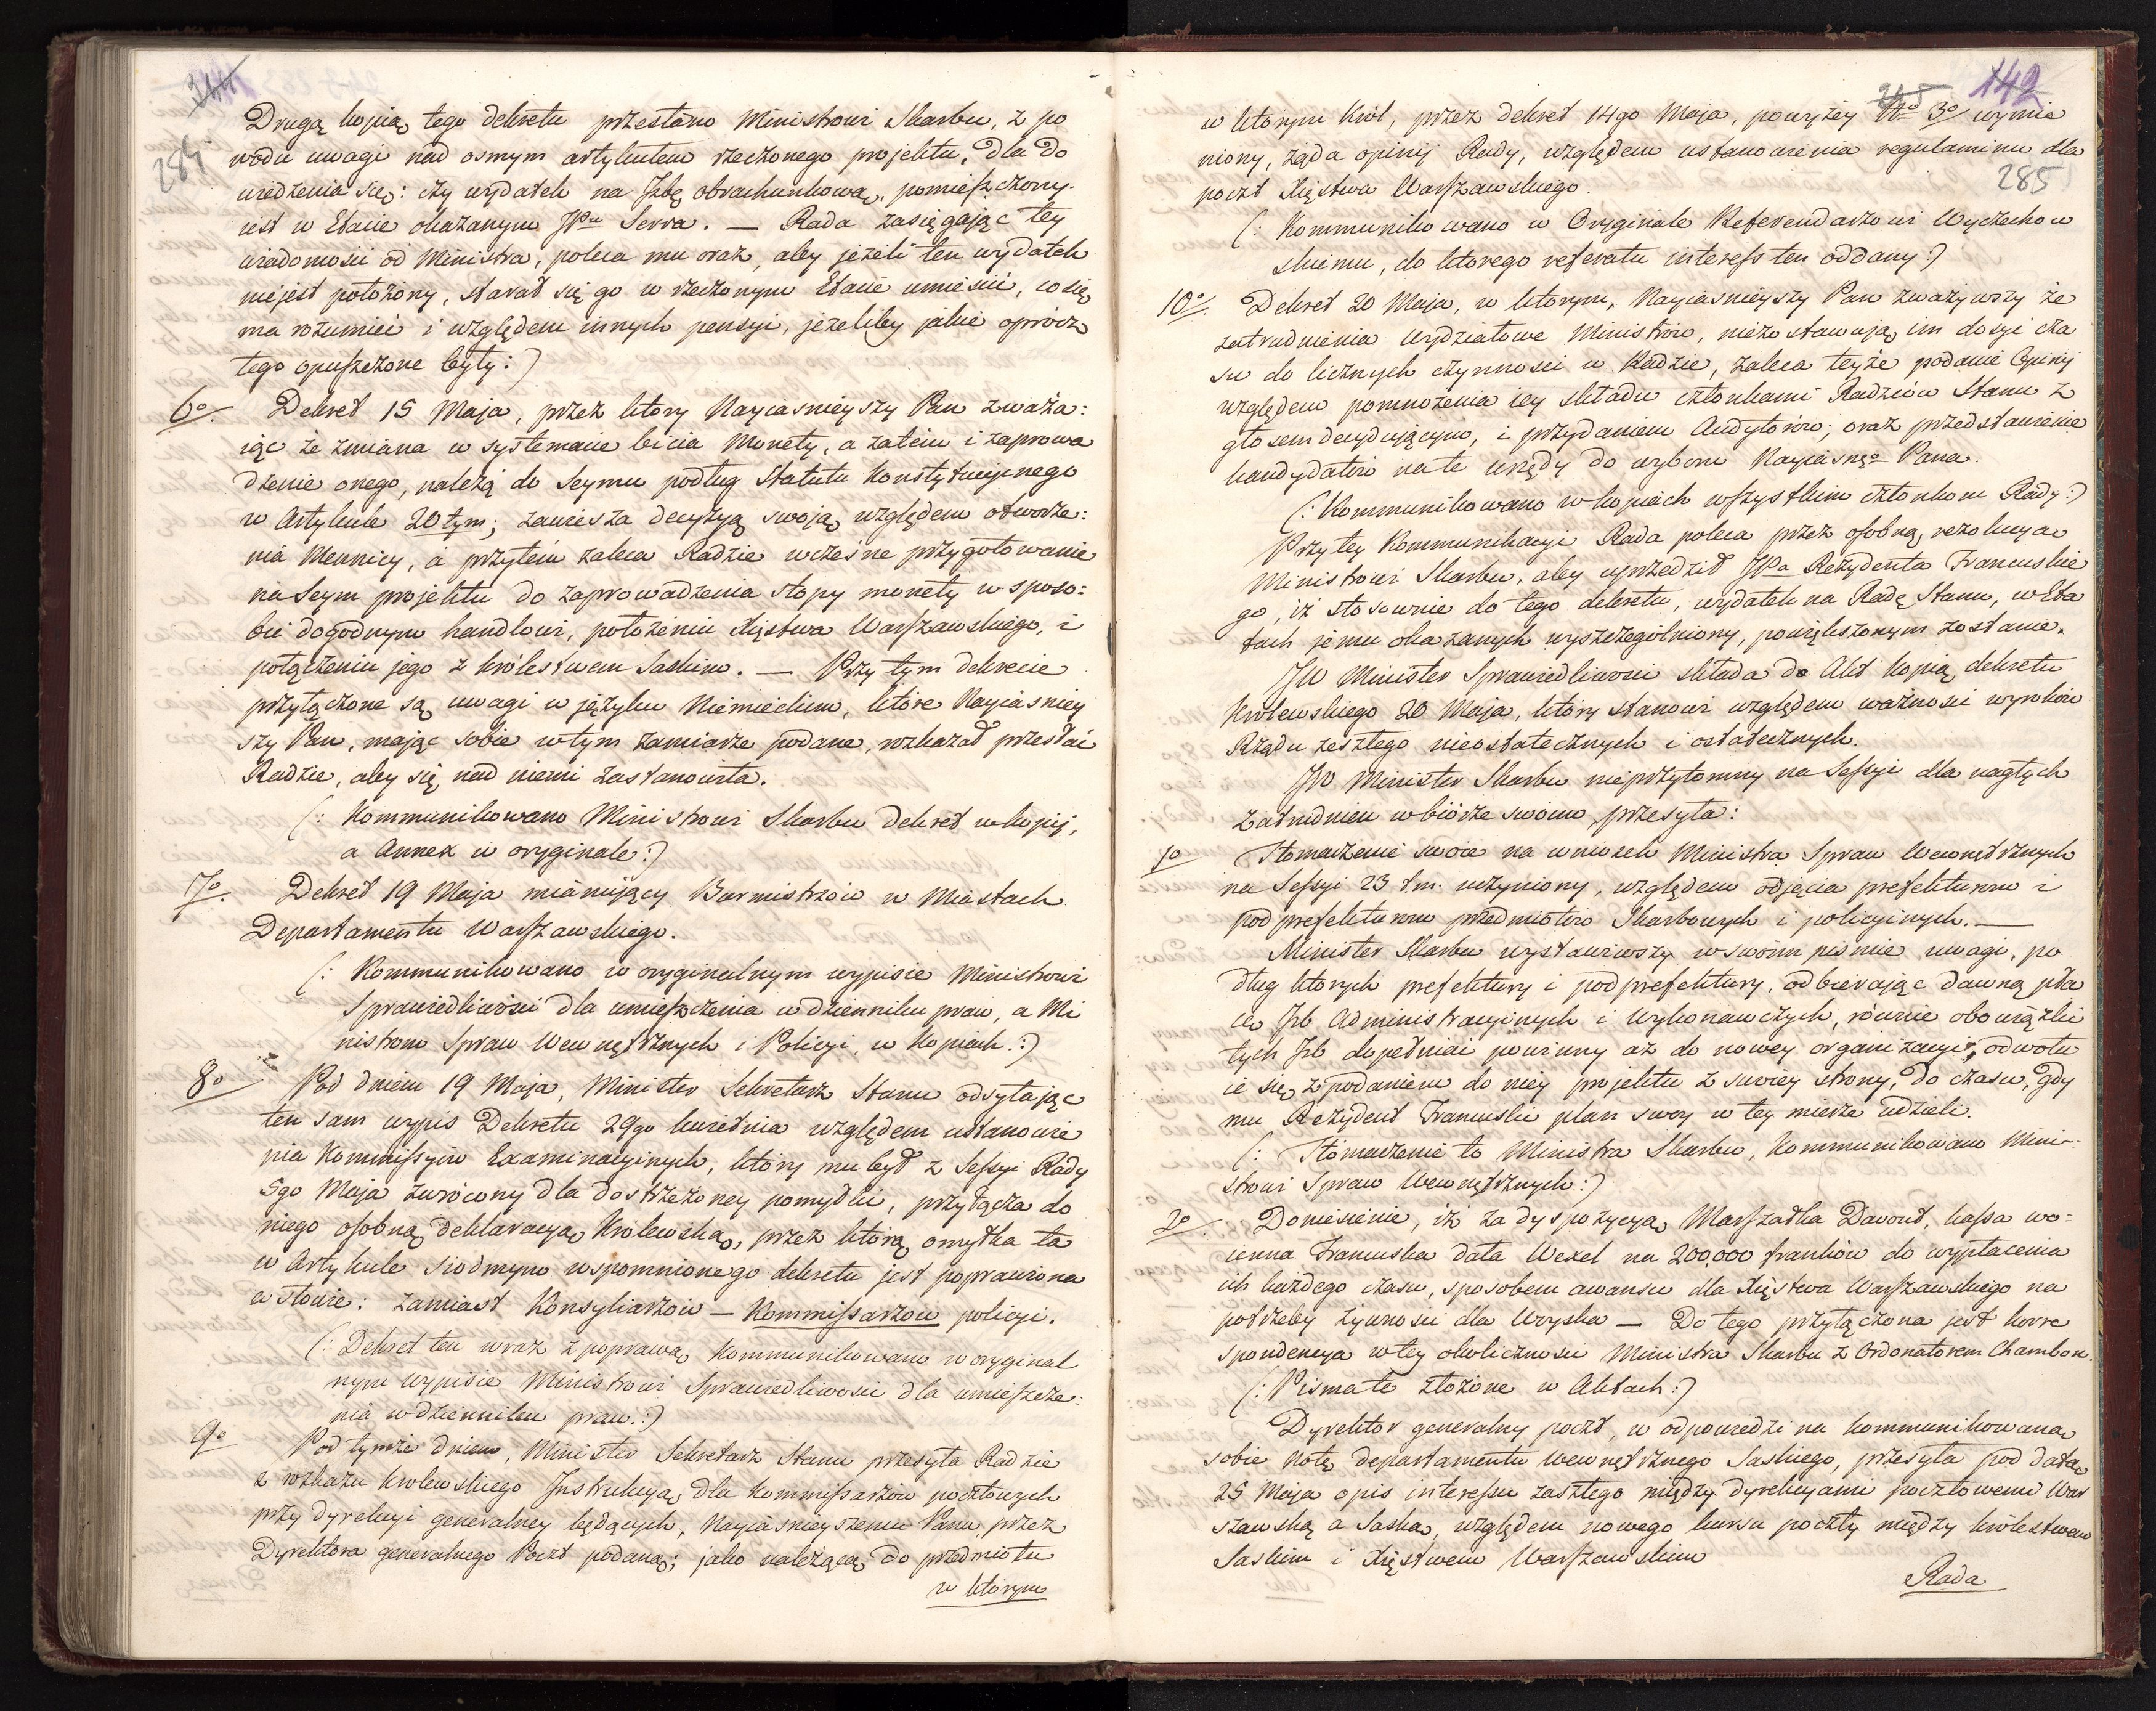 344
284
Drugą kopią tego dekretu przesłano Ministrowi Skarbu, z po
wodu uwagi nad osmym artykułem rzeczonego projektu, dla do
wiedzenia się: czy wydatek na Izbę obrachunkową, pomieszczony
iest w Etacie okazanym JPu Serra. — Rada zasięgając tey
wiadomości od Ministra, poleca mu oraz, aby jeżeli ten wydatek
niejest położony, starał się go w rzeczonym Etacie umieścić, co się
ma rozumieć i względem innych pensyi, jeżeliby jakie oprócz
tego opuszczone były:)
6o/. Dekret 15 Maja, przez który Nayiasnieyszy Pan zważa:
iąc że zmiana w systemacie bicia Monety, a zatém i zaprowa
dzenie onego, należą do Seymu podług Statutu Konstytucyinego
w Artykule 20tym; zawiesza decyzyą swoją względem otworze:
nia Mennicy, a przytém zaleca Radzie wcześne przygotowanie
na Seym projektu do zaprowadzenia stopy monety w sposo:
bie dogodnym handlowi, położeniu Xięstwa Warszawskiego, i
połączeniu jego z królestwem Saskim. — Przy tym dekrecie
przyłączone są uwagi w języku Niemieckim, które Nayiasniey
szy Pan, mając sobie wtym zamiarze podane, rozkazał przesłać
Radzie, aby się nad niemi zastanowiła.
(: Kommunikowano Ministrowi Skarbu dekret w kopij,
a Annex w oryginale:)
7o/. Dekret 19 Maja mianujący Burmistrzów w Miastach
Departamentu Warszawskiego.
(: Kommunikowano w oryginalnym wypisie Ministrowi
Sprawiedliwości dla umieszczenia w dzienniku praw, a Mi
nistrom Spraw Wewnętrznych i Policyi, w Kopiach.:)
8o/ Pod dniem 19 Maja, Minister Sekretarz Stanu odsyłając
ten sam wypis Dekretu 29go kwietnia względem ustanowie
nia Kommissyiów Examinacyinych, który mu był z Sessyi Rady
5go Maja zwrócony dla dostrzeżoney pomyłki, przyłącza do
niego osobną deklaracyą Królewską, przez którą omyłka ta
w Artykule siodmym wspomnionego dekretu jest poprawiona
w słowie: zamiast Konsyliarzów — Kommissarzów policyi.
(: Dekret ten wraz z poprawą Kommunikowano w oryginal
nym wypisie Ministrowi Sprawiedliwości dla umieszcze:
nia w dzienniku praw.:)
9o/ Pod tymże dniem, Minister Sekretarz Stanu przesyła Radzie
z rozkazu Królewskiego Instrukcyą dla Kommissarzów pocztowych
przy dyrekcyi generalney będących, Nayiasnieyszemu Panu przez
Dyrektora generalnego Poczt podaną; jako należącą do przedmiotu
w którym
245 142
285
w którym Król, przez dekret 14go Maja, powyżey No 3o/ wymie
niony, żąda opinij Rady, względem ustanowienia regulaminu dla
poczt Xięstwa Warszawskiego.
(: Kommunikowano w Oryginale Referendarzowi Wyczechow
skiemu, do którego referatu interess ten oddany:)
10o/. Dekret 20 Maja, w którym, Nayiasnieyszy Pan zważywszy że
zatrudnienia Wydziałowe Ministrów, niezostawują im dosyć cza
su do licznych czynności w Radzie, zaleca teyże podanie Opinij
względem pomnożenia iey składu członkami Radziów Stanu z
głosem decydującym, i przydaniem Audytorów; oraz przedstawienie
kandydatów na te urzędy do wyboru Nayiasngo Pana.
(: Kommunikowano w kopiach wszystkim członkom Rady:)
Przy tey Kommunikacyi Rada poleca przez osobną rezolucyą
Ministrowi Skarbu, aby uprzedził JPa Rezydenta Francuskie
go, iż stosownie do tego dekretu, wydatek na Radę Stanu, w Eta
tach jemu okazanych wyszczególniony, powiększonym zostanie.
JW Minister Sprawiedliwości składa do Akt kopią dekretu
Królewskiego 20 Maja, który stanowi względem ważności wyroków
Rządu zeszłego nieostatecznych i ostatecznych.
JW Minister Skarbu nieprzytomny na Sessyi dla nagłych
zatrudnień w biórze swoim, przesyła:
1o Tłomaczenie swoie na wniosek Ministra Spraw Wewnętrznych
na Sessyi 23 t.m. uczyniony, względem odjęcia prefekturom i
podprefekturom przedmiotów Skarbowych i policyinych. —
Minister Skarbu wystawiwszy w swoim piśmie uwagi, po
dług których prefektury i podprefektury, odbierając dawną pła
cę Izb Administracyinych i Wykonawczych, równie obowiązki
tych Izb dopełniać powinny aż do nowey organizacyi, odwołu
ie się z podaniem do niey projektu z swoiey strony, do czasu, gdy
mu Rezydent Francuski plan swoy w tey mierze udzieli.
(: Tłomaczenie to Ministra Skarbu, Kommunikowano Mini-
strowi Spraw Wewnętrznych:)
2o/. Doniesienie, iż za dyspozycyą Marszałka Davout, kassa wo=
ienna Francuska dała Wexel na 200,000 franków do wypłacenia
ich każdego czasu, sposobem awansu dla Xięstwa Warszawskiego na
potrzeby żywności dla Woyska — Do tego przyłączona jest korre
spondencya w tey okoliczności Ministra Skarbu z Ordonatorem Chambon.
(: Pisma te złożone w Aktach:)
Dyrektor generalny poczt, w odpowiedzi na kommunikowaną
sobie Notę departamentu wewnętrznego Saskiego, przesyła pod datą
25 Maja opis interessu zaszłego między dyrekcyami pocztowemi War
szawską a Saską, względem nowego kursu poczty między królestwem
Saskim i Xięstwem Warszawskim
Rada